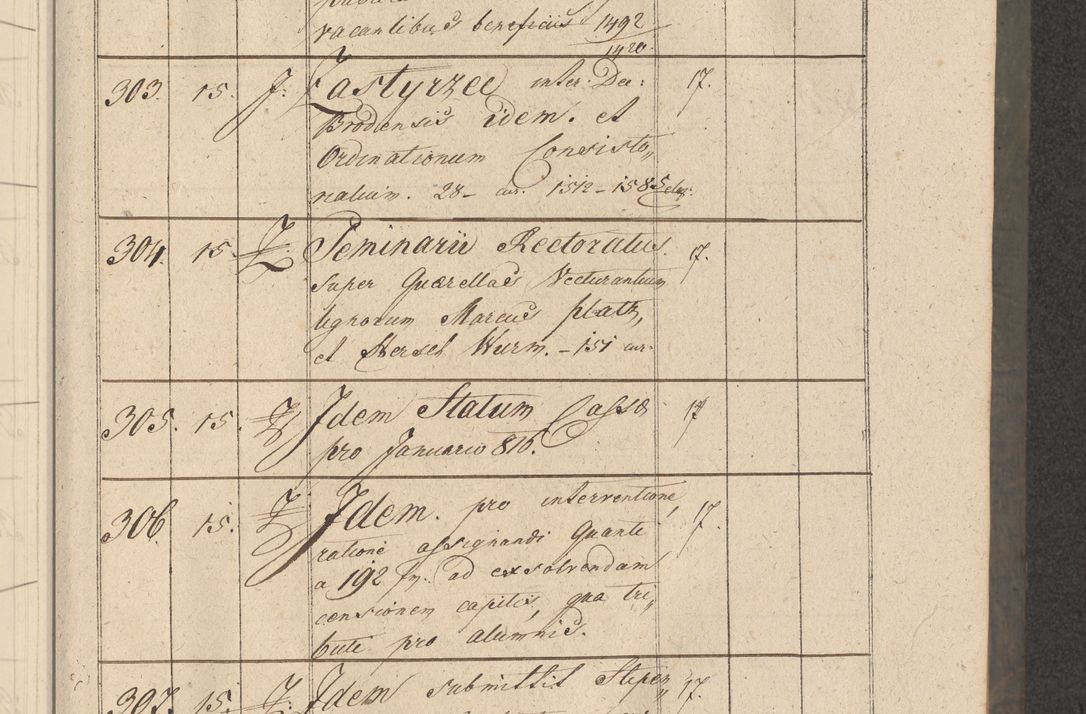 vacantibus beneficiis 1492
1420.
303. 15. J: Zastyrzec inter Dec: 17.
Brodensis idem. et
Ordinationum Consisto„
rialium. 28 – cur. 1512 – 1585
304. 15. Seminarii Rectoratus. 17.
super Quærellas Vecturantium
lignorum Marcus Platz,
et Hersch Wurm. – 151 cur.
305. 15. Idem Statum Cassæ 17
pro Januario 816.
306. 15. Idem. pro interventione, 17.
ratione assignandi Quanti
a 192 fr. ad exsolvendam
censionem capitis, qua tri„
buti pro alumnis.
307. 15. Idem submittit Stipen„ 17.